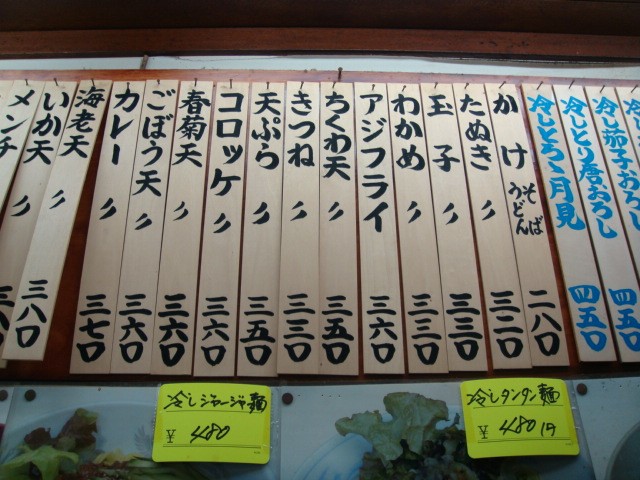 冷し茄子おろし
冷しとり唐おろし 四五〇
冷しとろゝ月見 四五〇
かけ そば うどん 二八〇
たぬき 〃 三二〇
玉子 〃 三三〇
わかめ 〃 三三〇
アジフライ 三六〇
ちくわ天 〃 三五〇
きつね 〃 三三〇
天ぷら 〃 三五〇
コロッケ 〃 三六〇
春菊天 〃 三六〇
ごぼう天 〃 三六〇
カレー 〃 三七〇
海老天 〃 三八〇
いか天 〃
メンチ
冷しジャージャ麺
¥480
冷しタンタン麺
¥480円